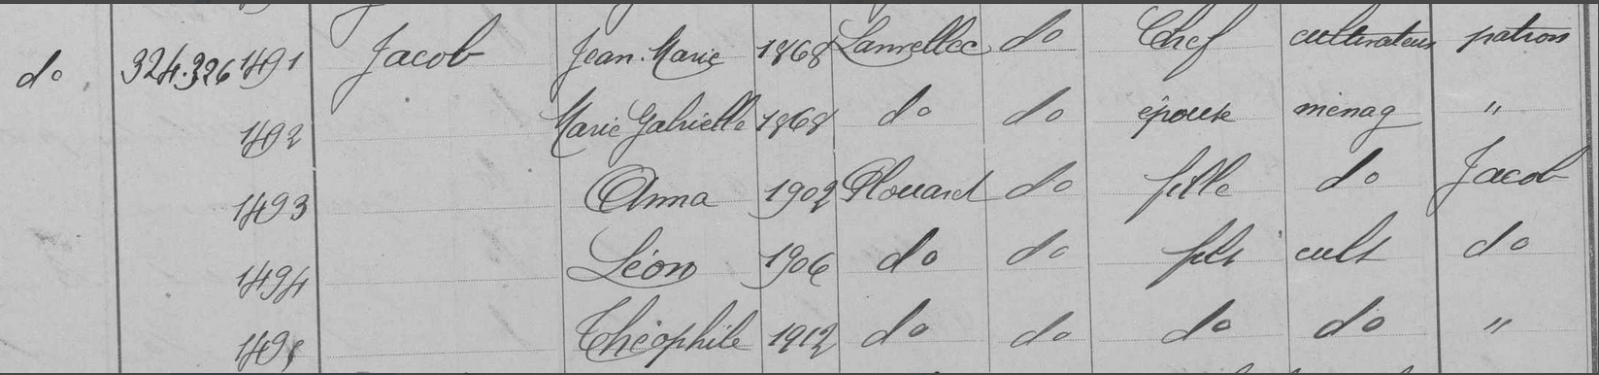 do 324.326 1491 Jacob Jean-Marie 1868 Lanvellec do Chef cultivateur patron
1492 Marie Gabrielle 1868 do do épouse ménag "
1493 Anna 1902 Plouaret do fille do Jacob
1494 Léon 1906 do do fils cult do
1495 Théophile 1912 do do do do "